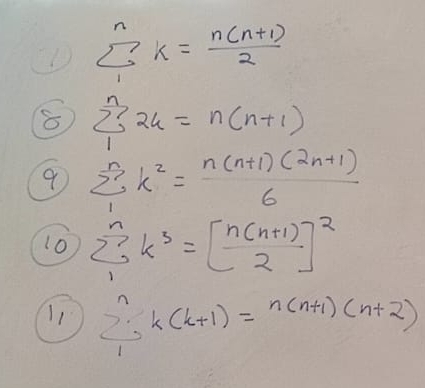 7 n∑1 k = n(n+1)/2
8 n∑1 2k = n(n+1)
9 n∑1 k² = n(n+1)(2n+1)/6
10 n∑1 k³ = [n(n+1)/2]²
11 n∑1 k(k+1) = n(n+1)(n+2)